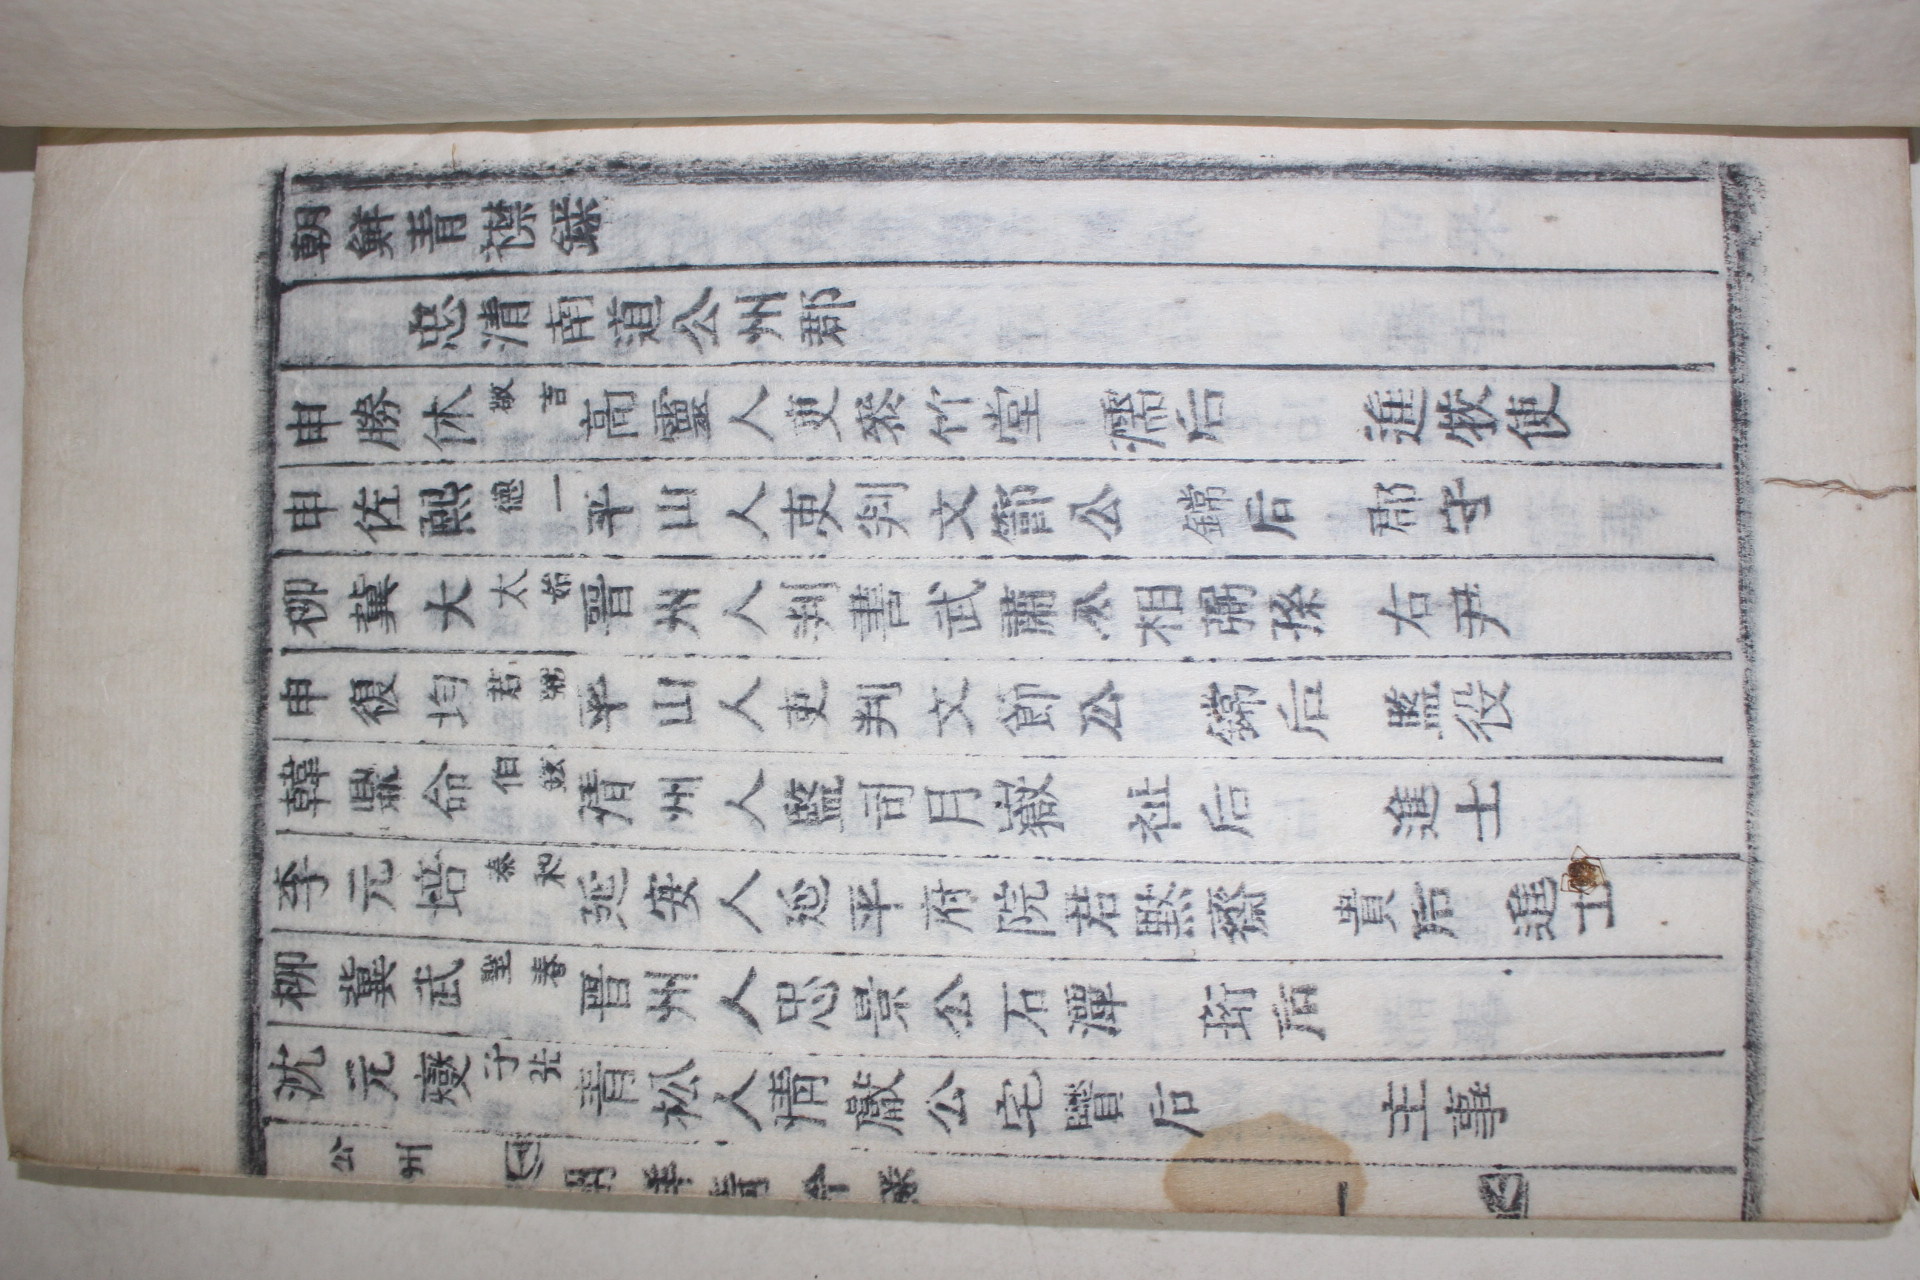 朝鮮青襟錄
忠清南道公州郡
申勝休 敬吉 高靈人吏叅竹堂 濡后 進牧使
申佐熙 德一 平山人吏判文節公 鏛后 郡守
柳冀大 太始 晋州人判書武肅公相弼孫 右尹
申復均 君 平山人吏判文節公 鏛后 監役
韓鼎命 伯鉉 清州人監司月嶽 祉后 進士
李元培 泰和 延安人延平府院君默齋 貴后 進士
柳冀武 聖春 晋州人忠景公石潭 珩后
沈元燮 子光 青松人清獻公宅賢后 主事
公州 朝鮮青衿錄 一